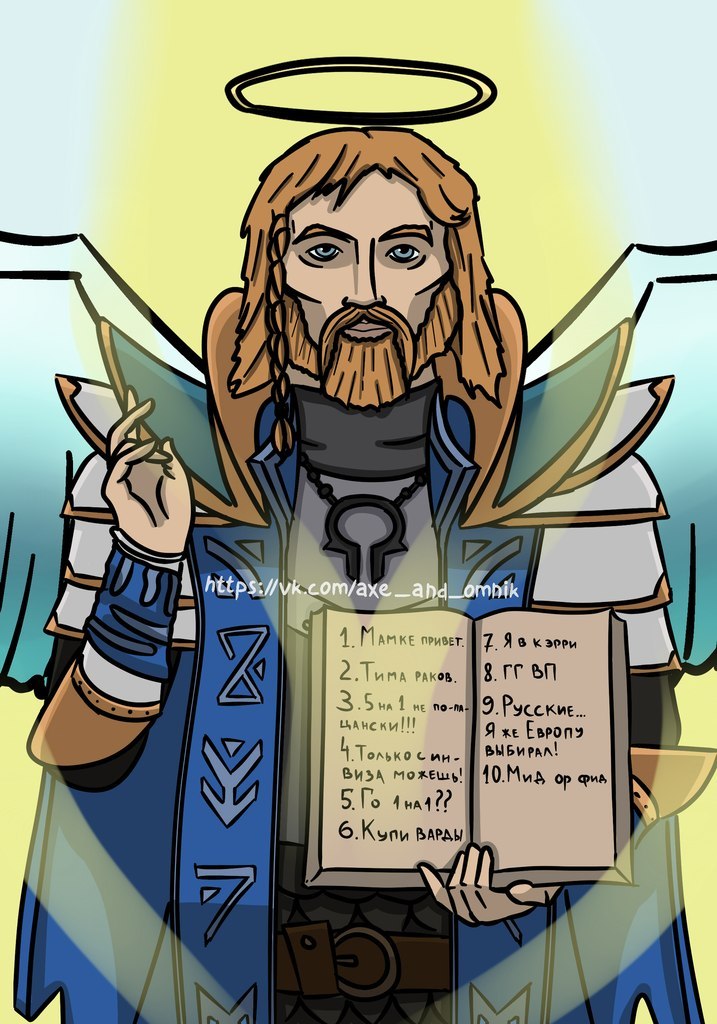 https://vk.com/axe_and_omnik
1. Мамке привет.
2. Тима раков.
3. 5 на 1 не по-па-
цански!!!
4. Только с ин-
виза можешь!
5. Го 1 на 1??
6. Купи варды
7. Я в кэрри
8. ГГ ВП
9. Русские...
Я же Европу
выбирал!
10. Мид ор фид